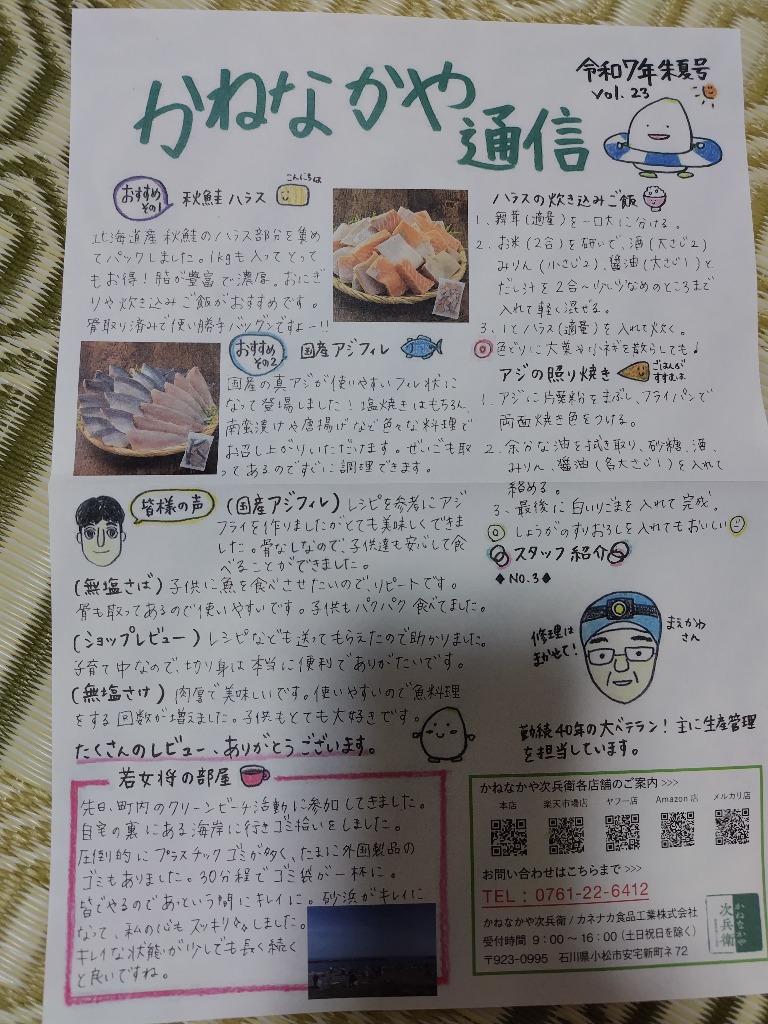 かねなかや通信
令和7年朱夏号
vol.23
おすすめその1
秋鮭ハラス
こんにちは
北海道産秋鮭のハラス部分を集め
てパックしました。1kgも入ってとっ
てもお得!脂が豊富で濃厚。おにぎ
りや炊き込みご飯がおすすめです。
骨取り済みで使い勝手バツグンですよー!!
おすすめその2
国産アジフィレ
国産の真アジが使いやすいフィレ状に
なって登場しました!塩焼きはもちろん
南蛮漬けや唐揚げなど色々な料理で
お召し上がりいただけます。ぜいごも取
ってあるのですぐに調理できます。
ハラスの炊き込みご飯
1. 舞茸(適量)を一口大に分ける。
2. お米(2合)を研いで、酒(大さじ2)
みりん(小さじ2)、醤油(大さじ1)と
だし汁を2合〜少し少なめのところまで
入れて軽く混ぜる。
3. 1とハラス(適量)を入れて炊く。
◎色どりに大葉や小ネギを散らしても♪
アジの照り焼き
ごはんがすすむよ
1. アジに片栗粉をまぶし、フライパンで
両面焼き色をつける。
2. 余分な油を拭き取り、砂糖、酒、
みりん、醤油(各大さじ1)を入れて
絡める。
3. 最後に白いりごまを入れて完成。
◎しょうがのすりおろしを入れてもおいしい
皆様の声
(国産アジフィレ)レシピを参考にアジ
フライを作りましたがとても美味しくできま
した。骨なしなので、子供達も安心して食
べることができました。
(無塩さば)子供に魚を食べさせたいので、リピートです。
骨も取ってあるので使いやすいです。子供もパクパク食べてました。
(ショップレビュー)レシピなども送ってもらえたので助かりました。
子育て中なので、切り身は本当に便利でありがたいです。
(無塩さけ)肉厚で美味しいです。使いやすいので魚料理
をする回数が増えました。子供もとても大好きです。
たくさんのレビュー、ありがとうございます。
スタッフ紹介
◆NO.3◆
修理はまかせて!
まえがわさん
勤続40年の大ベテラン!主に生産管理
を担当しています。
若女将の部屋
先日、町内のクリーンビーチ活動に参加してきました。
自宅の裏にある海岸に行きゴミ拾いをしました。
圧倒的にプラスチックゴミが多く、たまに外国製品の
ゴミもありました。30分程でゴミ袋が一杯に。
皆でやるのであっという間にキレイに。砂浜がキレイに
なって、私の心もスッキリしました。
キレイな状態が少しでも長く続く
と良いですね。
かねなかや次兵衛各店舗のご案内 >>>
本店 楽天市場店 ヤフー店 Amazon店 メルカリ店
お問い合わせはこちらまで >>>
TEL : 0761-22-6412
かねなかや次兵衛 / カネナカ食品工業株式会社
受付時間 9:00~16:00(土日祝日を除く)
〒923-0995 石川県小松市安宅新町ネ72
かねなかや
次兵衛